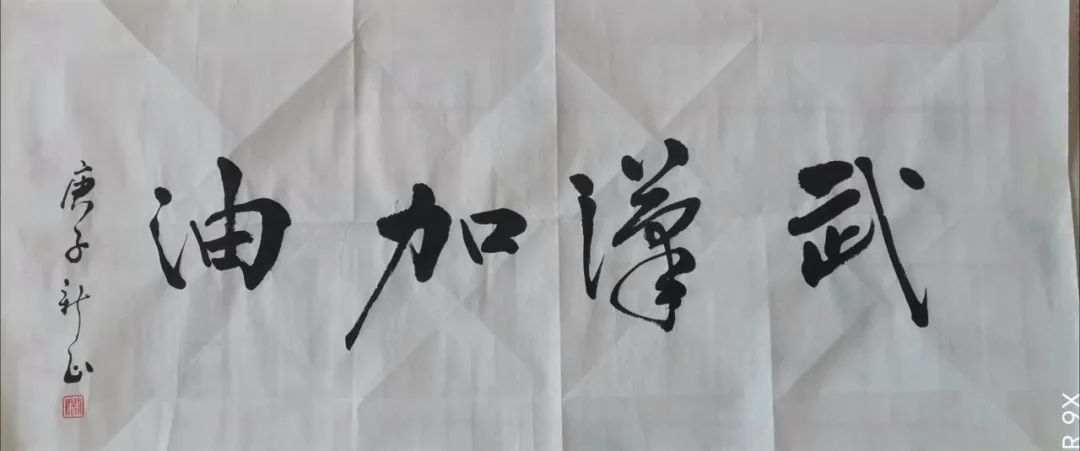 武漢加油
庚子新正
R 9X